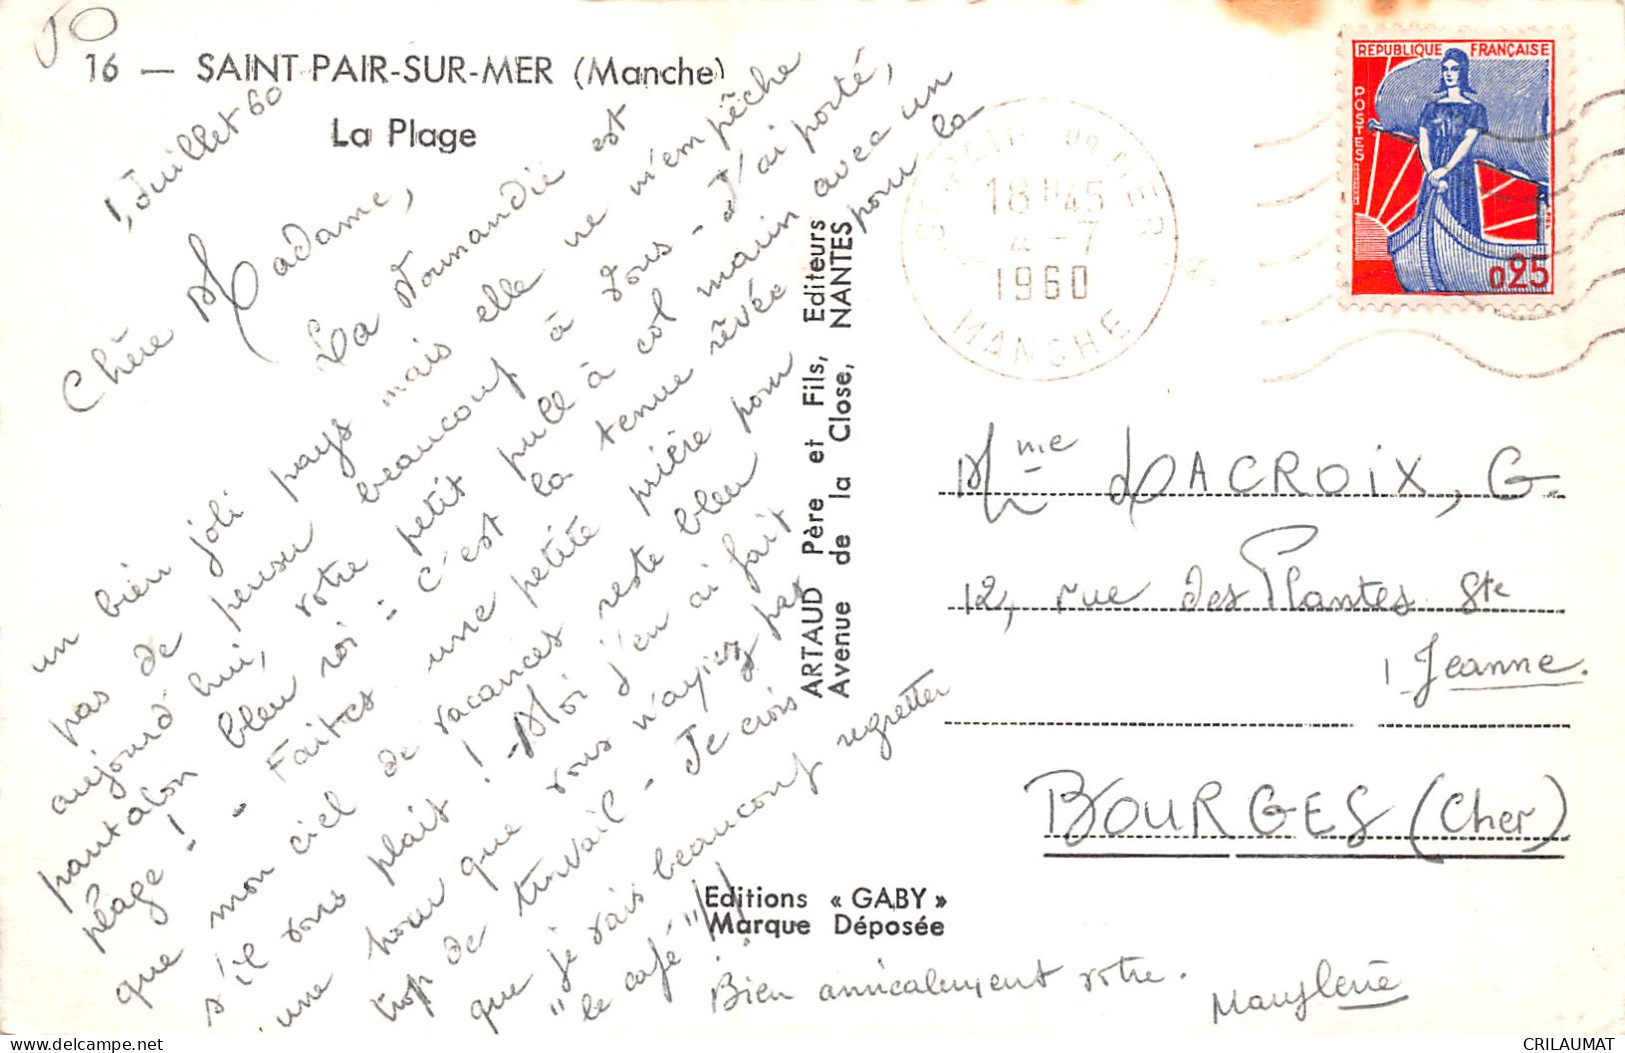 16 — SAINT PAIR-SUR-MER (Manche)
La Plage
1, Juillet 60
Chère Madame,
La Normandie est
un bien joli pays mais elle ne m'empêche
pas de penser beaucoup à vous - J'ai porté,
aujourd'hui, votre petit pull à col marin avec un
pantalon bleu roi = c'est la tenue rêvée pour la
plage ! - Faites une petite prière pour
que mon ciel de vacances reste bleu
s'il vous plait ! - Moi j'en ai fait
une pour que vous n'ayiez pas
trop de travail - Je crois
que je vais beaucoup regretter
"le café" !!!
Bien amicalement votre.
Marylène
ARTAUD Père et Fils, Editeurs
Avenue de la Close, NANTES
Editions « GABY »
Marque Déposée
ST PAIR SUR MER
18H45
4 -7
1960
MANCHE
REPUBLIQUE FRANÇAISE
POSTES
0,25
Mme LACROIX, G.
12, rue des Plantes Ste
Jeanne.
BOURGES (Cher)
CRILAUMAT